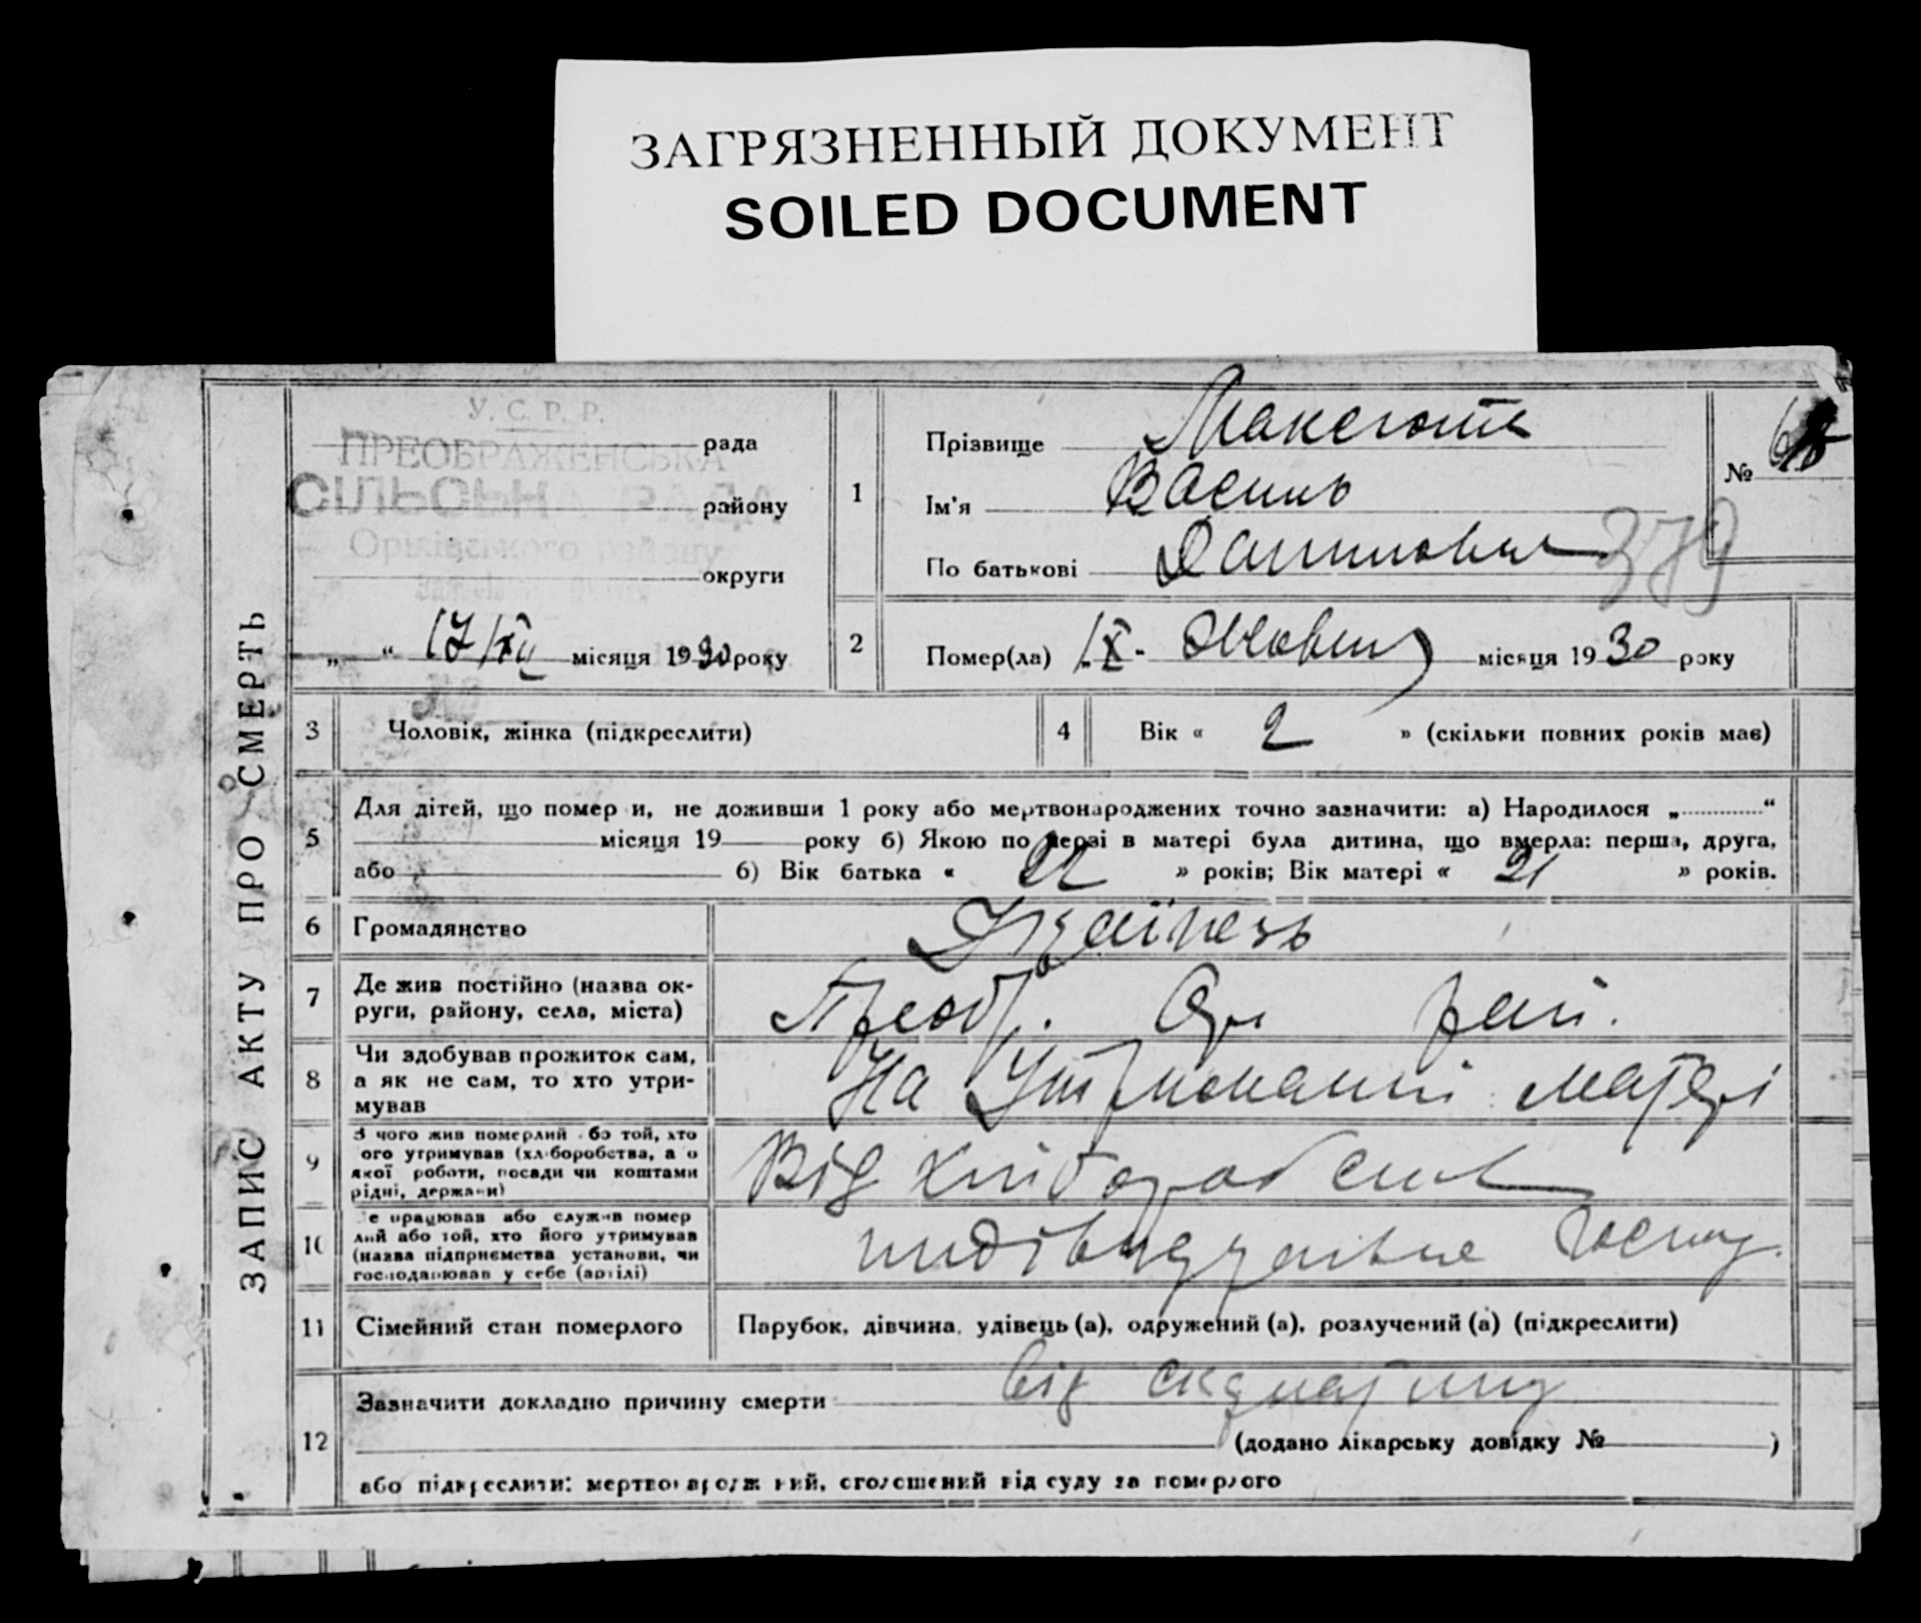 ЗАГРЯЗНЕННЫЙ ДОКУМЕНТ
SOILED DOCUMENT
ЗАПИС АКТУ ПРО СМЕРТЬ
У. С. Р. Р.
ПРЕОБРАЖЕНСЬКА
рада
СІЛЬСЬКА РАДА
району
Оріхівського району
округи
„ “ 17/XII місяця 1930 року
1
Прізвище
Ім'я Василь
По батькові Данилович
№
379
2
Помер(ла) Жовтня місяця 1930 року
3
Чоловік, жінка (підкреслити)
4
Вік « 2 » (скільки повних років мав)
5
Для дітей, що помер и, не доживши 1 року або мертвонароджених точно зазначити: а) Народилося „ “
місяця 19 року б) Якою по черзі в матері була дитина, що вмерла: перша, друга,
або б) Вік батька « 22 » років; Вік матері « 21 » років.
6
Громадянство Українець
7
Де жив постійно (назва ок-
руги, району, села, міста)
Преобр. Ор рай.
8
Чи здобував прожиток сам,
а як не сам, то хто утри-
мував
На Утриманні матері
9
З чого жив померлий бо той, хто
ого утримував (хліборобства, а о
якої роботи, посади чи коштами
рідні, держави)
Від хліборобства
10
е працював або служив помер
лий або той, хто його утримував
(назва підприємства установи, чи
господарював у себе (артілі)
індівидуальне госпу.
11
Сімейний стан померлого
Парубок, дівчина, удівець (а), одружений (а), розлучений (а) (підкреслити)
12
Зазначити докладно причину смерти від скрлатини
(додано лікарську довідку № )
або підкреслити: мертвонароджений, оголошений від суду за померлого